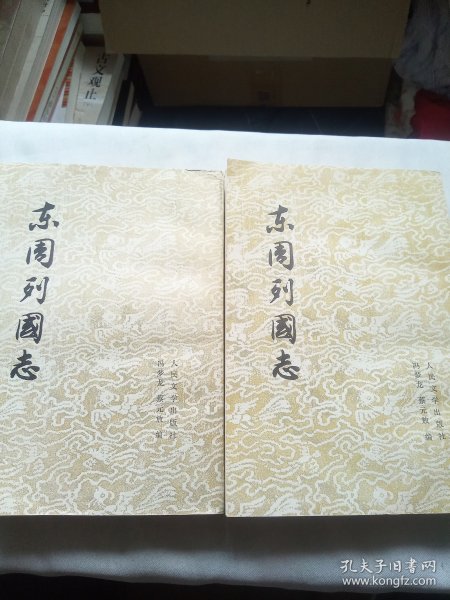 古文观止
东周列國志
人民文学出版社
冯梦龙 蔡元放 编
东周列國志
人民文学出版社
冯梦龙 蔡元放 编
孔夫子旧书网
www.kongfz.com